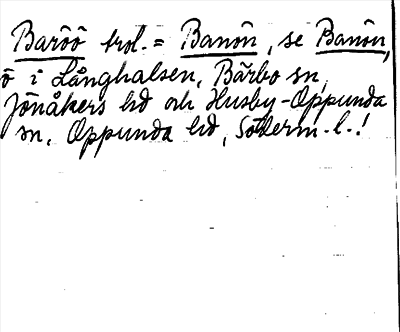 Baröö trol. = Banön, se Banön,
ö i Långhalsen, Bärbo sn,
Jönåkers hd och Husby-Oppunda
sn, Oppunda hd, Söderm. l.!